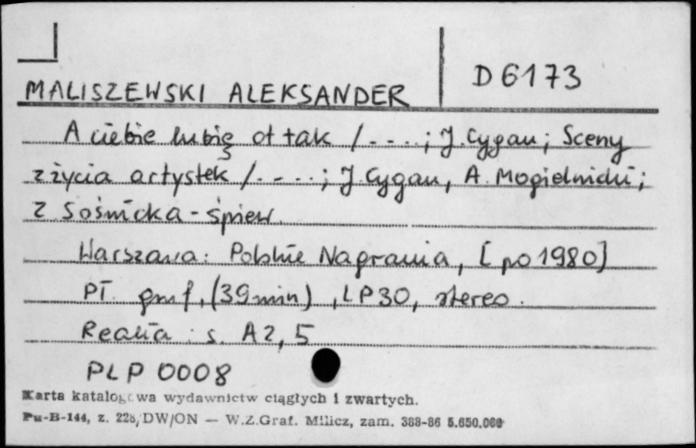 D 6173
MALISZEWSKI ALEKSANDER
A ciebie lubię ot tak /-...; J. Cygan; Sceny
z życia artystek /-...; J. Cygan, A. Mogielnicki;
Z Sośnicka - śpiew.
Warszawa: Polskie Nagrania, [po 1980]
Pł. gmf, (39 min), LP30, stereo.
Realia: s. A2, 5
PLP 0008
Karta katalogowa wydawnictw ciągłych i zwartych.
Pu-B-144, z. 225/DW/ON — W.Z.Graf. Milicz, zam. 388-86 5.650.000